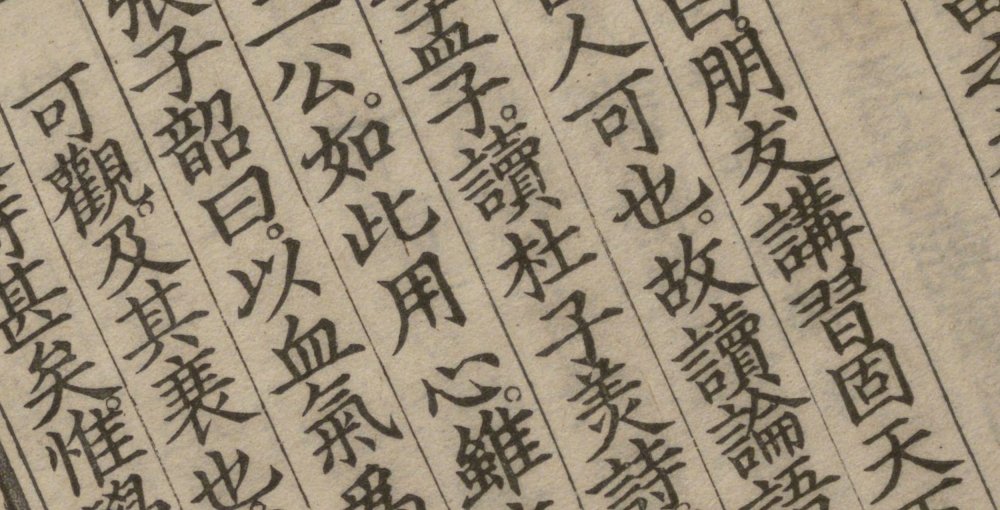 曰。朋友講習固天下
人可也。故讀論語
孟子。讀杜子美詩。
二公。如此用心。雖
張子韶曰。以血氣爲
可觀。及其衰也。
甚矣。惟